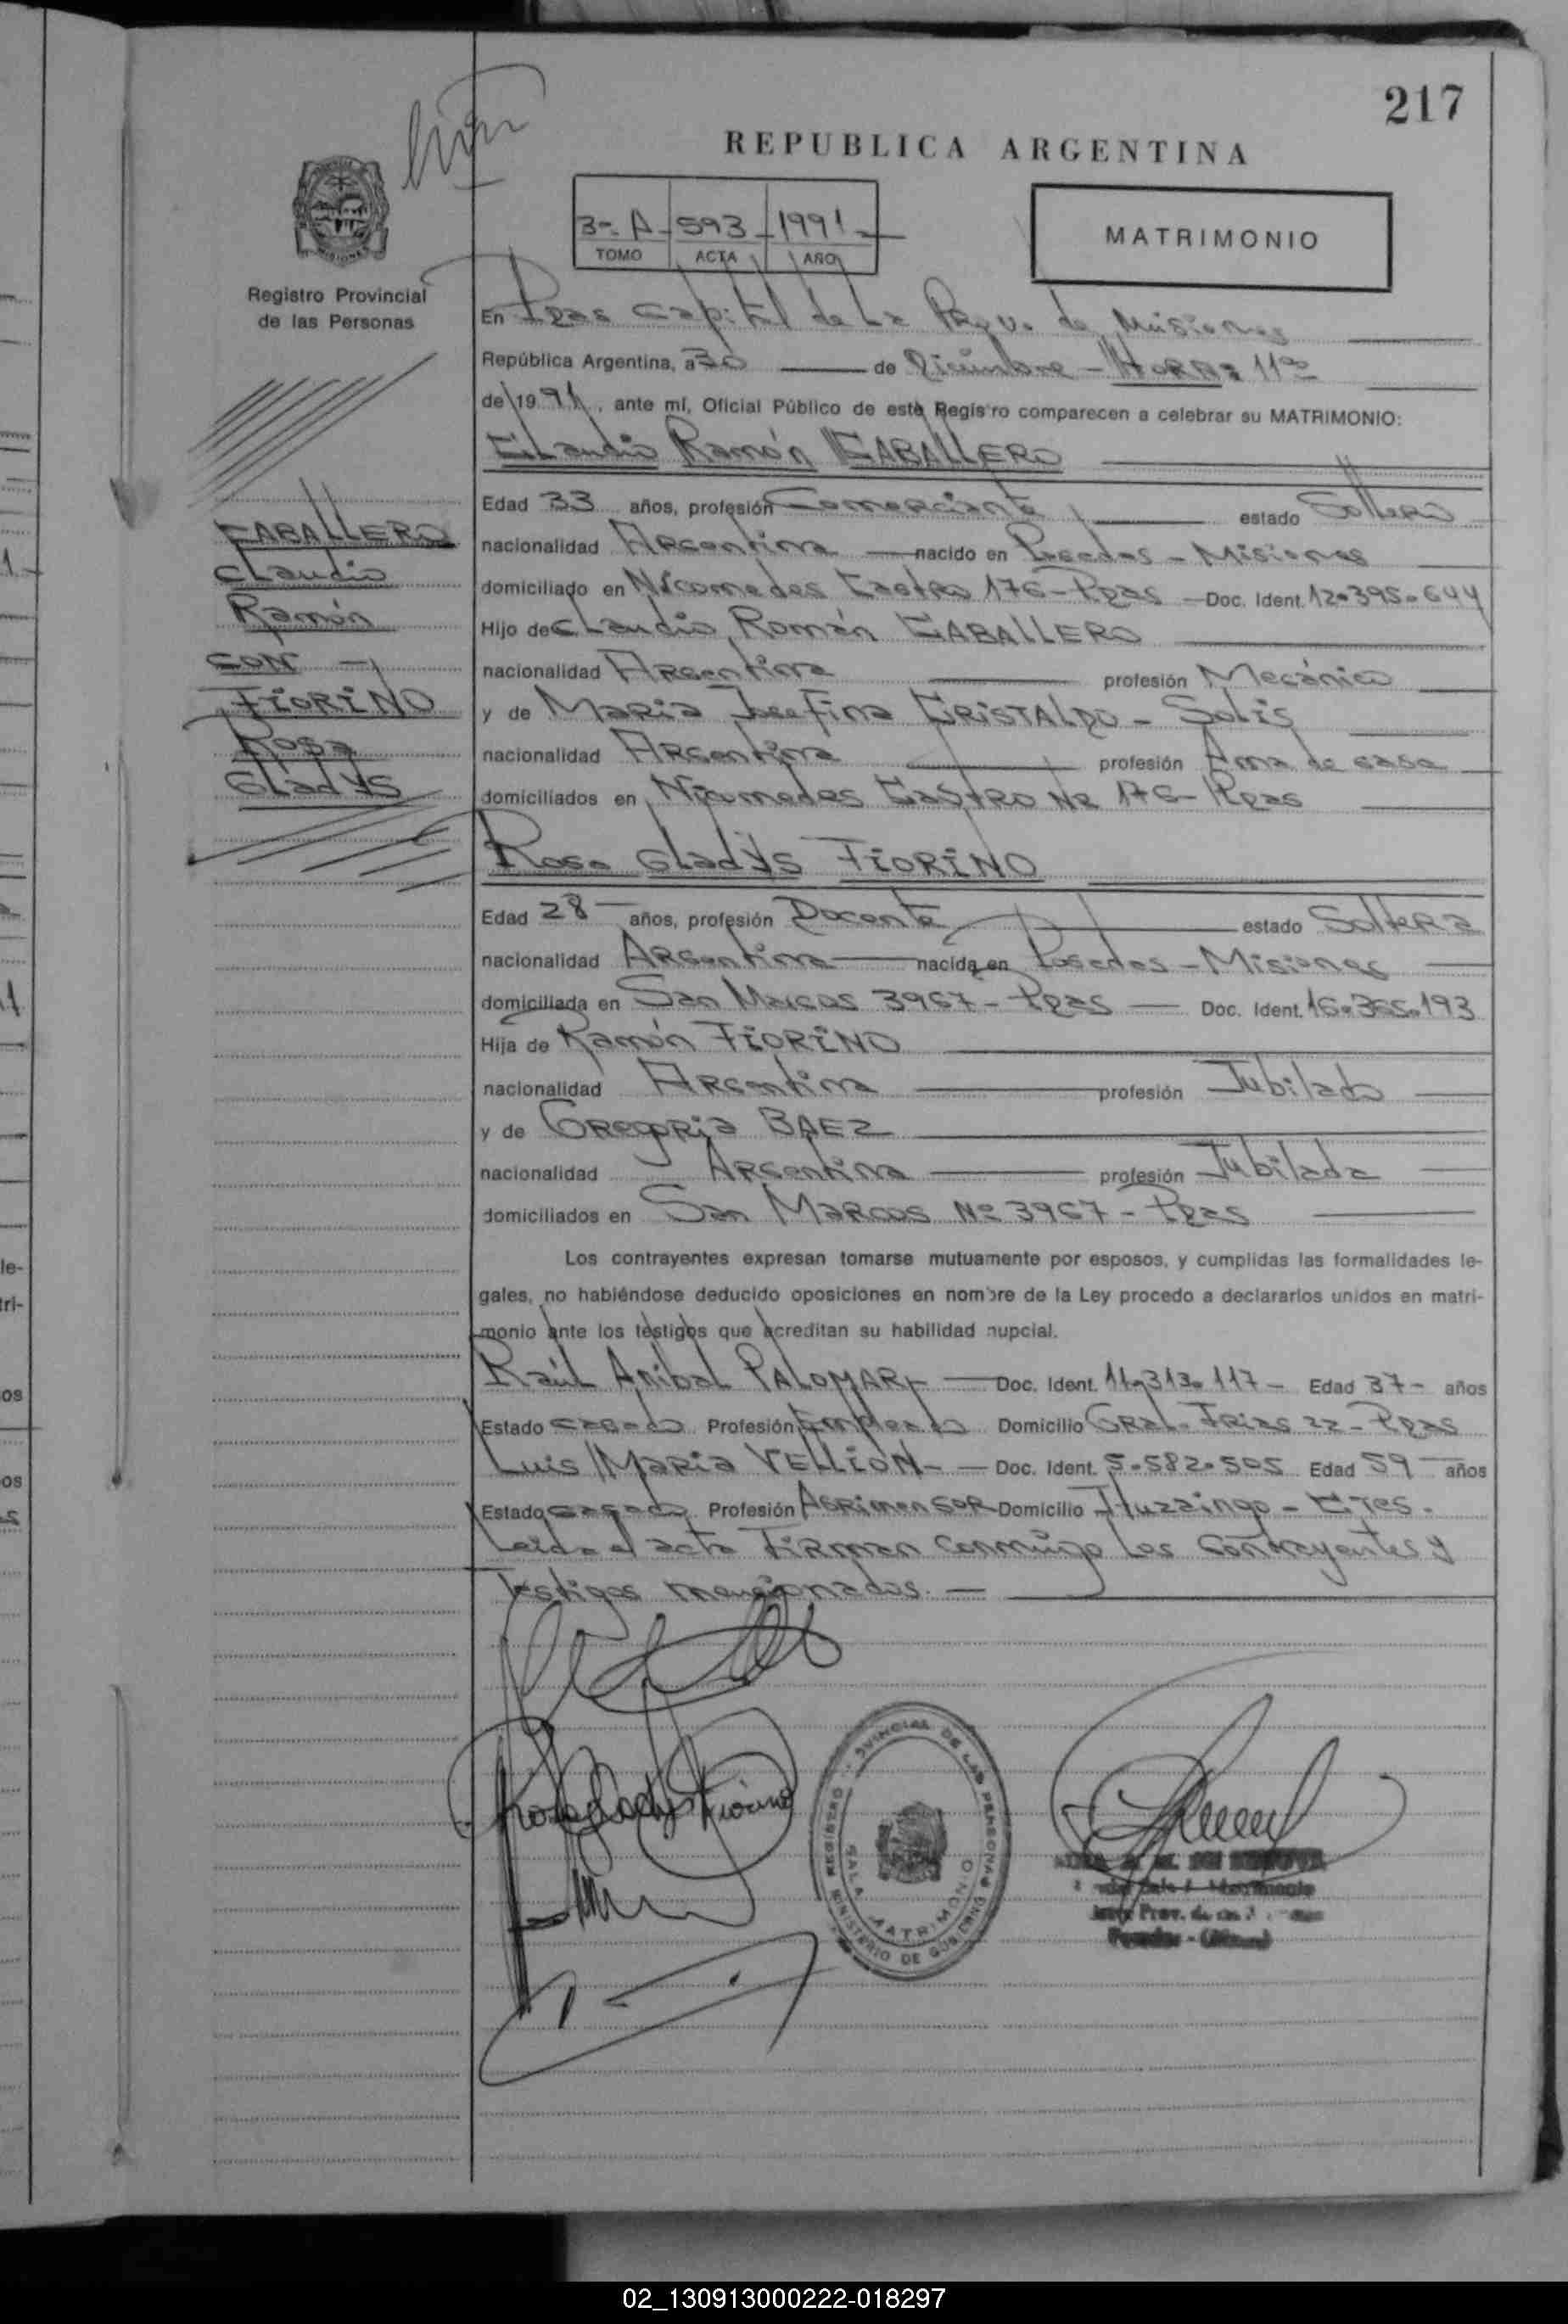 217
REPUBLICA ARGENTINA
3-. A - 593 - 1991 -
TOMO ACTA AÑO
MATRIMONIO
MISIONES
Registro Provincial
de las Personas
En Pdas Capital de La Prov. de Misiones
República Argentina, a 30 de Diciembre - HORA: 11
de 19 91, ante mí, Oficial Público de este Registro comparecen a celebrar su MATRIMONIO:
Claudio Ramón CABALLERO
CABALLERO
Claudio
Ramón
CON -
FIORINO
Rosa
Gladys
Edad 33 años, profesión Comerciante estado Soltero
nacionalidad Argentina nacido en Posadas - Misiones
domiciliado en Nicomedes Castro 176 - Pdas - Doc. Ident. 12.395.644
Hijo de Claudio Román CABALLERO
nacionalidad Argentina profesión Mecánico
y de Maria Josefina CRISTALDO - Solis
nacionalidad Argentina profesión Ama de casa
domiciliados en Nicomedes Castro Nº 176 - Pdas
Rosa Gladys FIORINO
Edad 28 - años, profesión Docente estado Soltera
nacionalidad Argentina nacida en Posadas - Misiones
domiciliada en San Marcos 3967 - Pdas - Doc. Ident. 16.365.193
Hija de Ramón FIORINO
nacionalidad Argentina profesión Jubilado
y de Gregoria BAEZ
nacionalidad Argentina profesión Jubilada
domiciliados en San Marcos Nº 3967 - Pdas
Los contrayentes expresan tomarse mutuamente por esposos, y cumplidas las formalidades le-
gales, no habiéndose deducido oposiciones en nombre de la Ley procedo a declararlos unidos en matri-
monio ante los testigos que acreditan su habilidad nupcial.
Raúl Anibal PALOMAR - Doc. Ident. 11.313.117 - Edad 37 - años
Estado casado Profesión Empleado Domicilio Gral. Frias 22 - Pdas
Luis Maria VELLION - - Doc. Ident. 5.582.505 Edad 59 años
Estado casado Profesión Agrimensor Domicilio Ituzaingo - Ctes.
Leida el acta Firman conmigo Los Contrayentes y
Testigos mencionados. -
Rosa Gladys Fiorino
REGISTRO PROVINCIAL DE LAS PERSONAS
SALA MATRIMONIO
MINISTERIO DE GOBIERNO
02_130913000222-018297